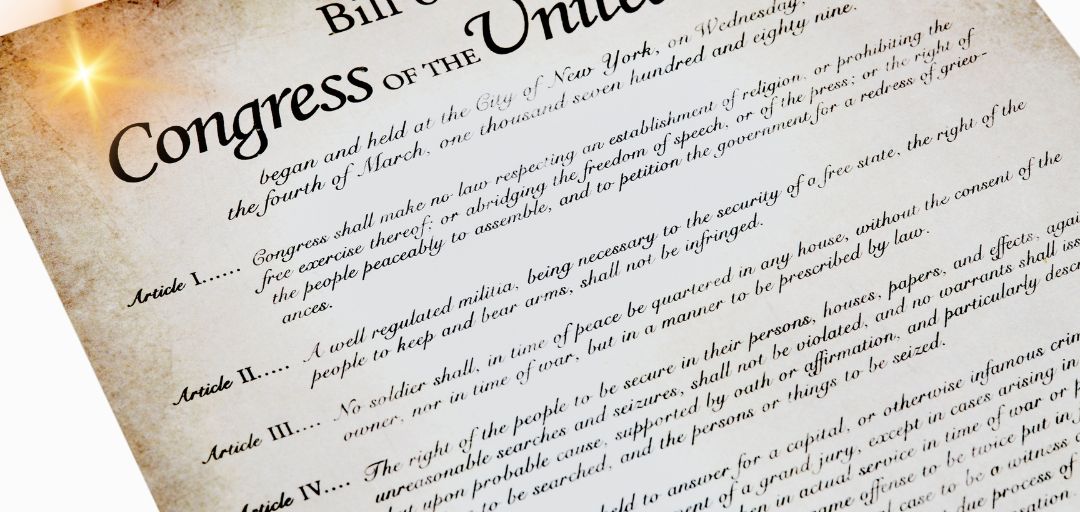 Bill
Congress OF THE United
began and held at the City of New York, on Wednesday,
the fourth of March, one thousand seven hundred and eighty nine.
Article I...... Congress shall make no law respecting an establishment of religion, or prohibiting the
free exercise thereof; or abridging the freedom of speech, or of the press; or the right of
the people peaceably to assemble, and to petition the government for a redress of griev-
ances.
Article II...... A well regulated militia, being necessary to the security of a free state, the right of the
people to keep and bear arms, shall not be infringed.
Article III.... No soldier shall, in time of peace be quartered in any house, without the consent of the
owner, nor in time of war, but in a manner to be prescribed by law.
Article IV.... The right of the people to be secure in their persons, houses, papers, and effects, 
unreasonable searches and seizures, shall not be violated, and no warrants shall
upon probable cause, supported by oath or affirmation, and particularly
to be searched, and the persons or things to be seized.
to answer for a capital, or otherwise infamous
of a grand jury, except in cases arising in
in actual service in time of war or
offense to be twice put in
case to be a witness
due process of